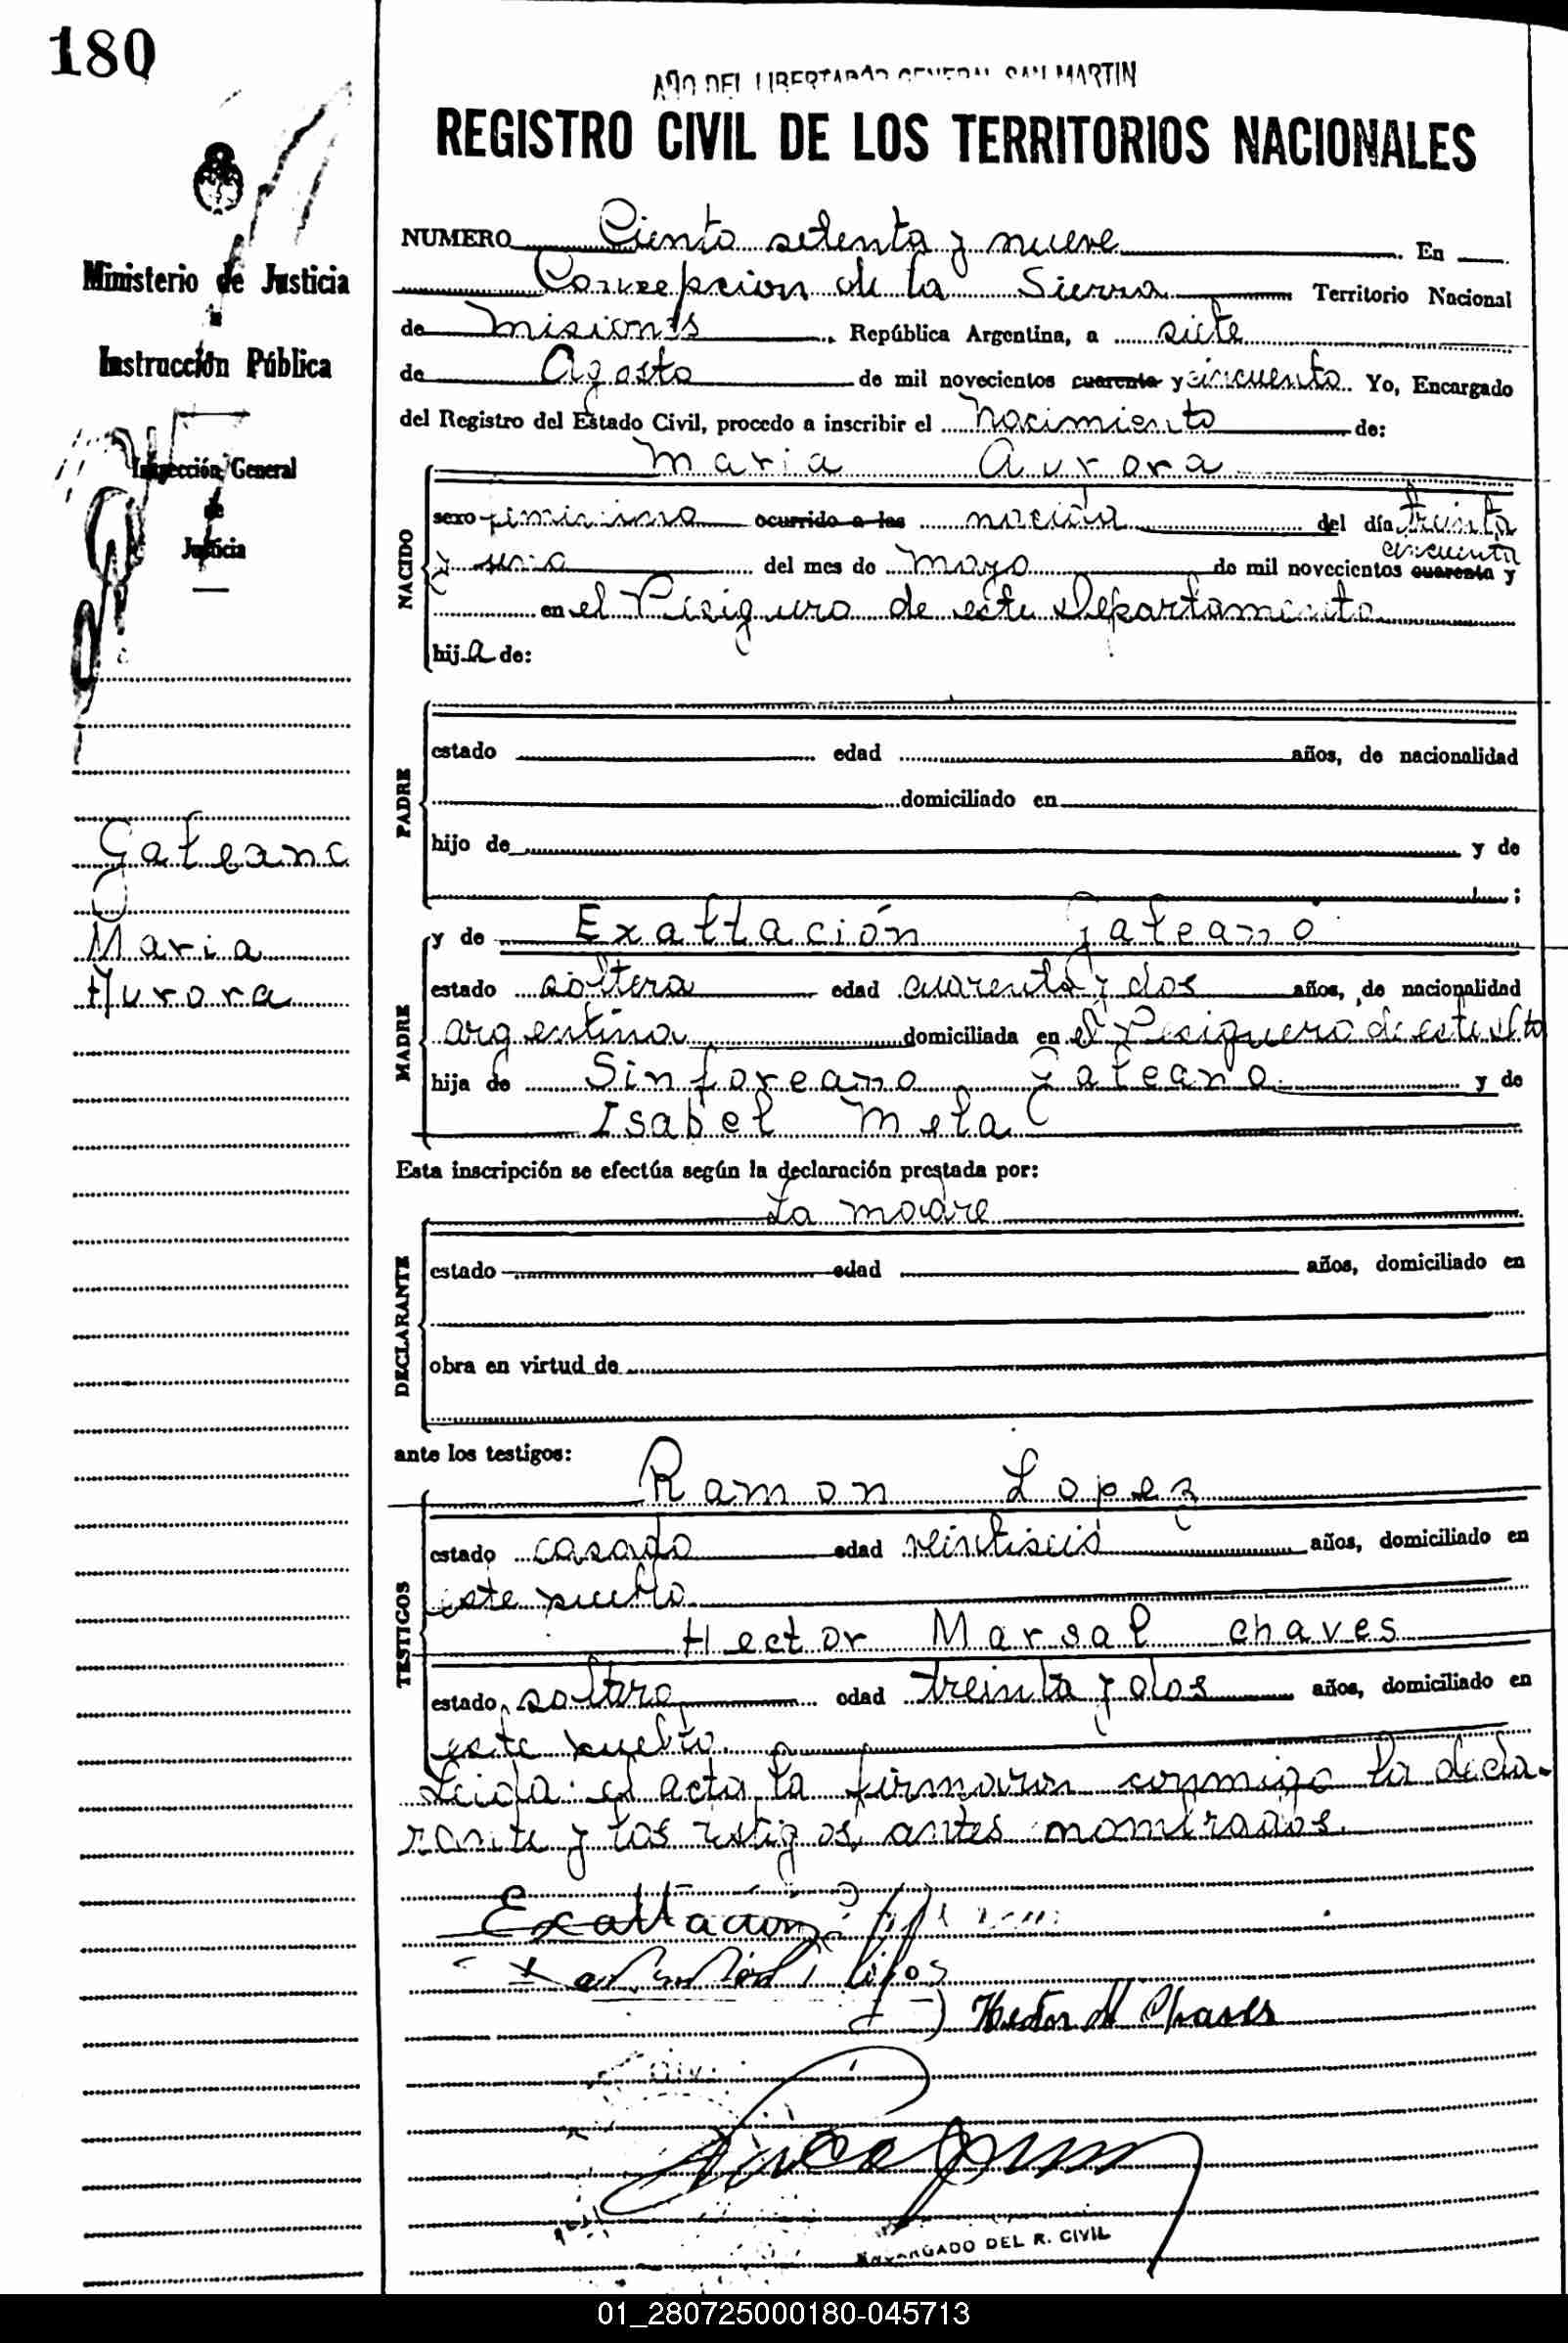 180
AÑO DEL LIBERTADOR GENERAL SAN MARTIN
REGISTRO CIVIL DE LOS TERRITORIOS NACIONALES
Ministerio de Justicia
e
Instrucción Pública
Inspección General
de
Justicia
Galeano
Maria
Aurora
NUMERO Ciento setenta y nueve. En
Concepcion de la Sierra Territorio Nacional
de Misiones, República Argentina, a siete
de Agosto de mil novecientos cuarenta y cincuenta. Yo, Encargado
del Registro del Estado Civil, procedo a inscribir el Nacimiento de:
NACIDO
Maria Aurora
sexo femenino ocurrido a las nacida del día treinta
cincuenta
y uno del mes de Mayo de mil novecientos cuarenta y
en el de este Departamento
hija de:
PADRE
estado edad años, de nacionalidad
domiciliado en
hijo de y de
;
MADRE
y de Exaltación Galeano
estado soltera edad cuarenta y dos años, de nacionalidad
argentina domiciliada en el de este Dto
hija de Sinforeano Galeano y de
Isabel Mela
Esta inscripción se efectúa según la declaración prestada por:
DECLARANTE
La madre
estado edad años, domiciliado en
obra en virtud de
ante los testigos:
TESTIGOS
Ramon Lopez
estado casado edad veintiseis años, domiciliado en
este pueblo
Hector Marsal chaves
estado soltero edad treinta y dos años, domiciliado en
este pueblo
Leida el acta la firmaron conmigo la decla-
rante y los testigos antes nombrados.
Exaltacion
Hector M Chaves
ENCARGADO DEL R. CIVIL
01_280725000180-045713